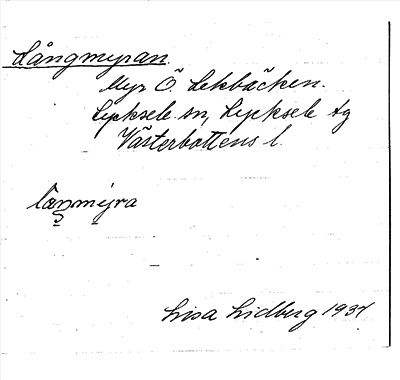 Långmyran.
Myr Ö. Lekbäcken.
Lycksele sn, Lycksele tg
Västerbottens l.
Lisa Lidberg 1937